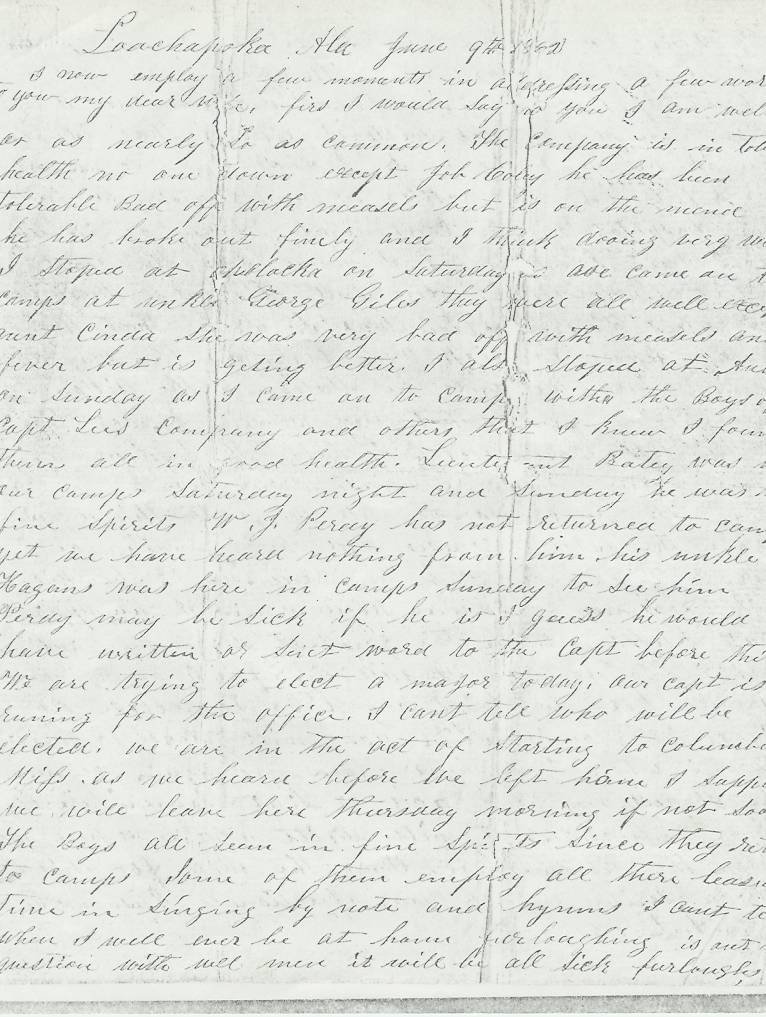 Loachapoka Ala June 9th 1862
I now employ a few moments in addressing a few wor
to you my dear wife, firs I would say to you I am wel
or as nearly So as common. The Company is in tol
health no one down except Job he has been
tolerable Bad off with measels but is on the mend
he has broke out finely and I think dooing very w
I stoped at on Saturday as we came on t
camps at unkle George Giles they were all well exc
aunt Cinda she was very bad off with measels an
fever but is geting better. I als stoped at Au
on Sunday as I came on to Camp with the Boys o
Capt Lees Company and others that I knew I foun
them all in good health. Lieutenant Batey was
our camps Saturday night and Sunday he was
fine Spirits W. J. Perdy has not returned to cam
yet we have heard nothing from him. his unkle
Hagans was here in camps Sunday to See him
Perdy may be Sick if he is I guess he would
have written or Sent word to the Capt before thi
We are trying to elect a major today. our capt is
runing for the office. I cant tell who will be
elected. we are in the act of Starting to Columb
Miss. as we heard before we left home I supp
we will leave here thursday morning if not Soo
The Boys all Seem in fine Spirits Since they re
to camps Some of them employ all there leas
time in Singing by note and hymns I cant te
when I will ever be at home furloughing is out
question with well men it will be all Sick furloughs,